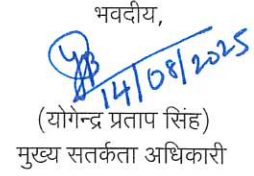 भवदीय,
14/08/2025
(योगेन्द्र प्रताप सिंह)
मुख्य सतर्कता अधिकारी